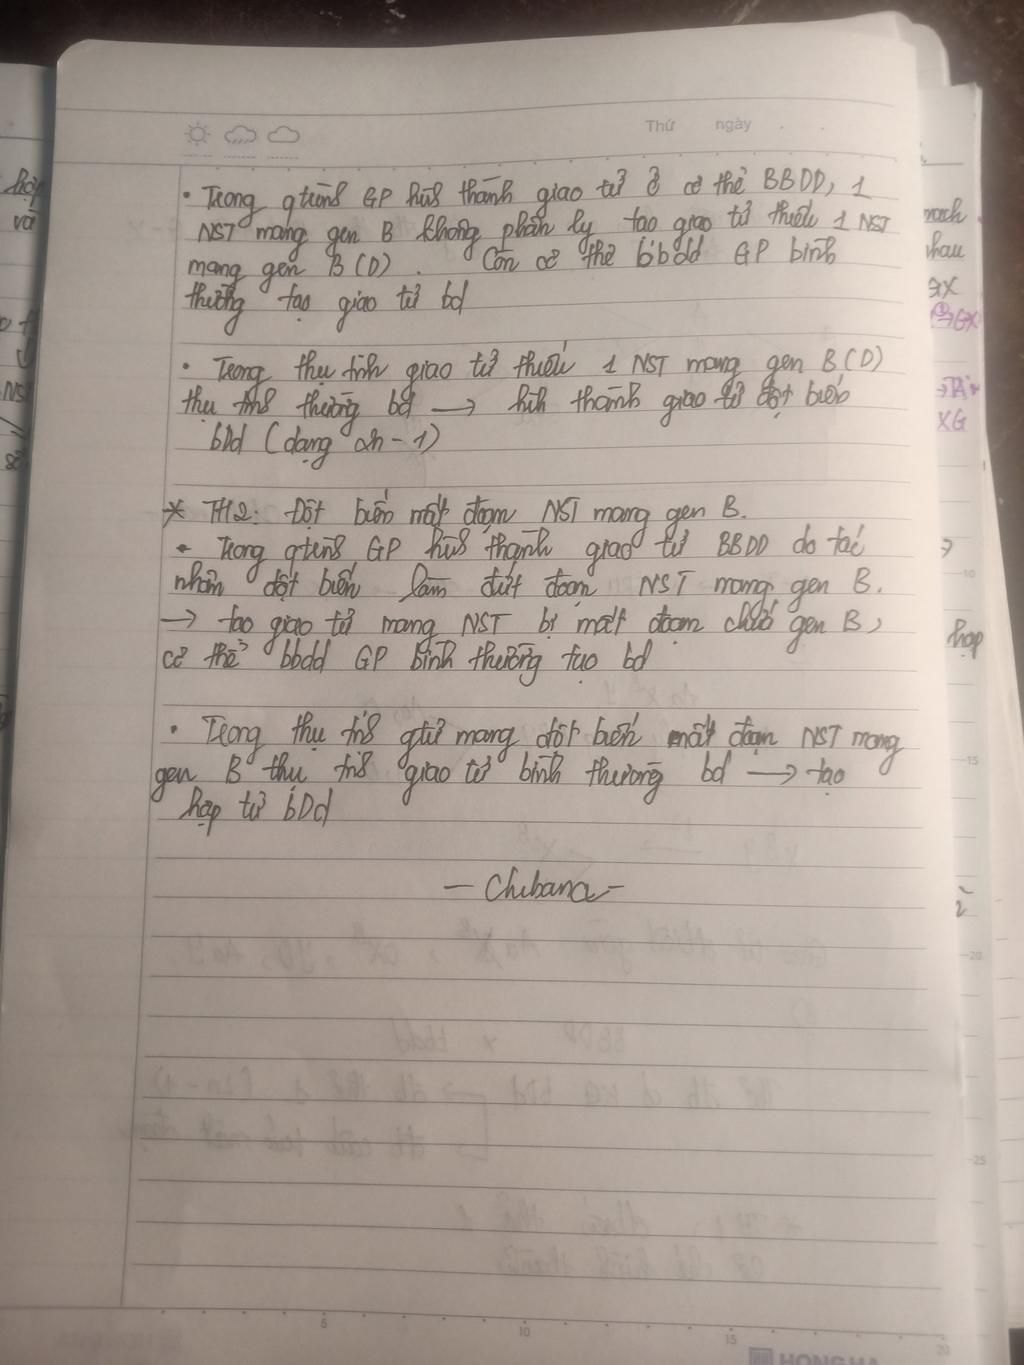 Thứ ngày
• Trong qtrình GP hình thành giao tử ở cơ thể BBDD, 1
NST mang gen B không phân ly tạo giao tử thiếu 1 NST
mang gen B (D). Còn cơ thể bbdd GP bình
thường tạo giao tử bd
• Trong thụ tinh giao tử thiếu 1 NST mang gen B (D)
thụ tinh thường bd → hình thành giao tử đột biến
bDd (dạng 2n-1)
* TH2: Đột biến mất đoạn NST mang gen B.
• Trong qtrình GP hình thành giao tử BBDD do tác
nhân đột biến làm đứt đoạn NST mang gen B.
→ tạo giao tử mang NST bị mất đoạn chứa gen B,
cơ thể bbdd GP bình thường tạo bd
• Trong thụ tinh gtử mang đột biến mất đoạn NST mang
gen B thụ tinh giao tử bình thường bd → tạo
hợp tử bDd
— Chibana —
5 10 15 20
HONG HA
mạch
nhau
XG
hợp
10
15
20
25